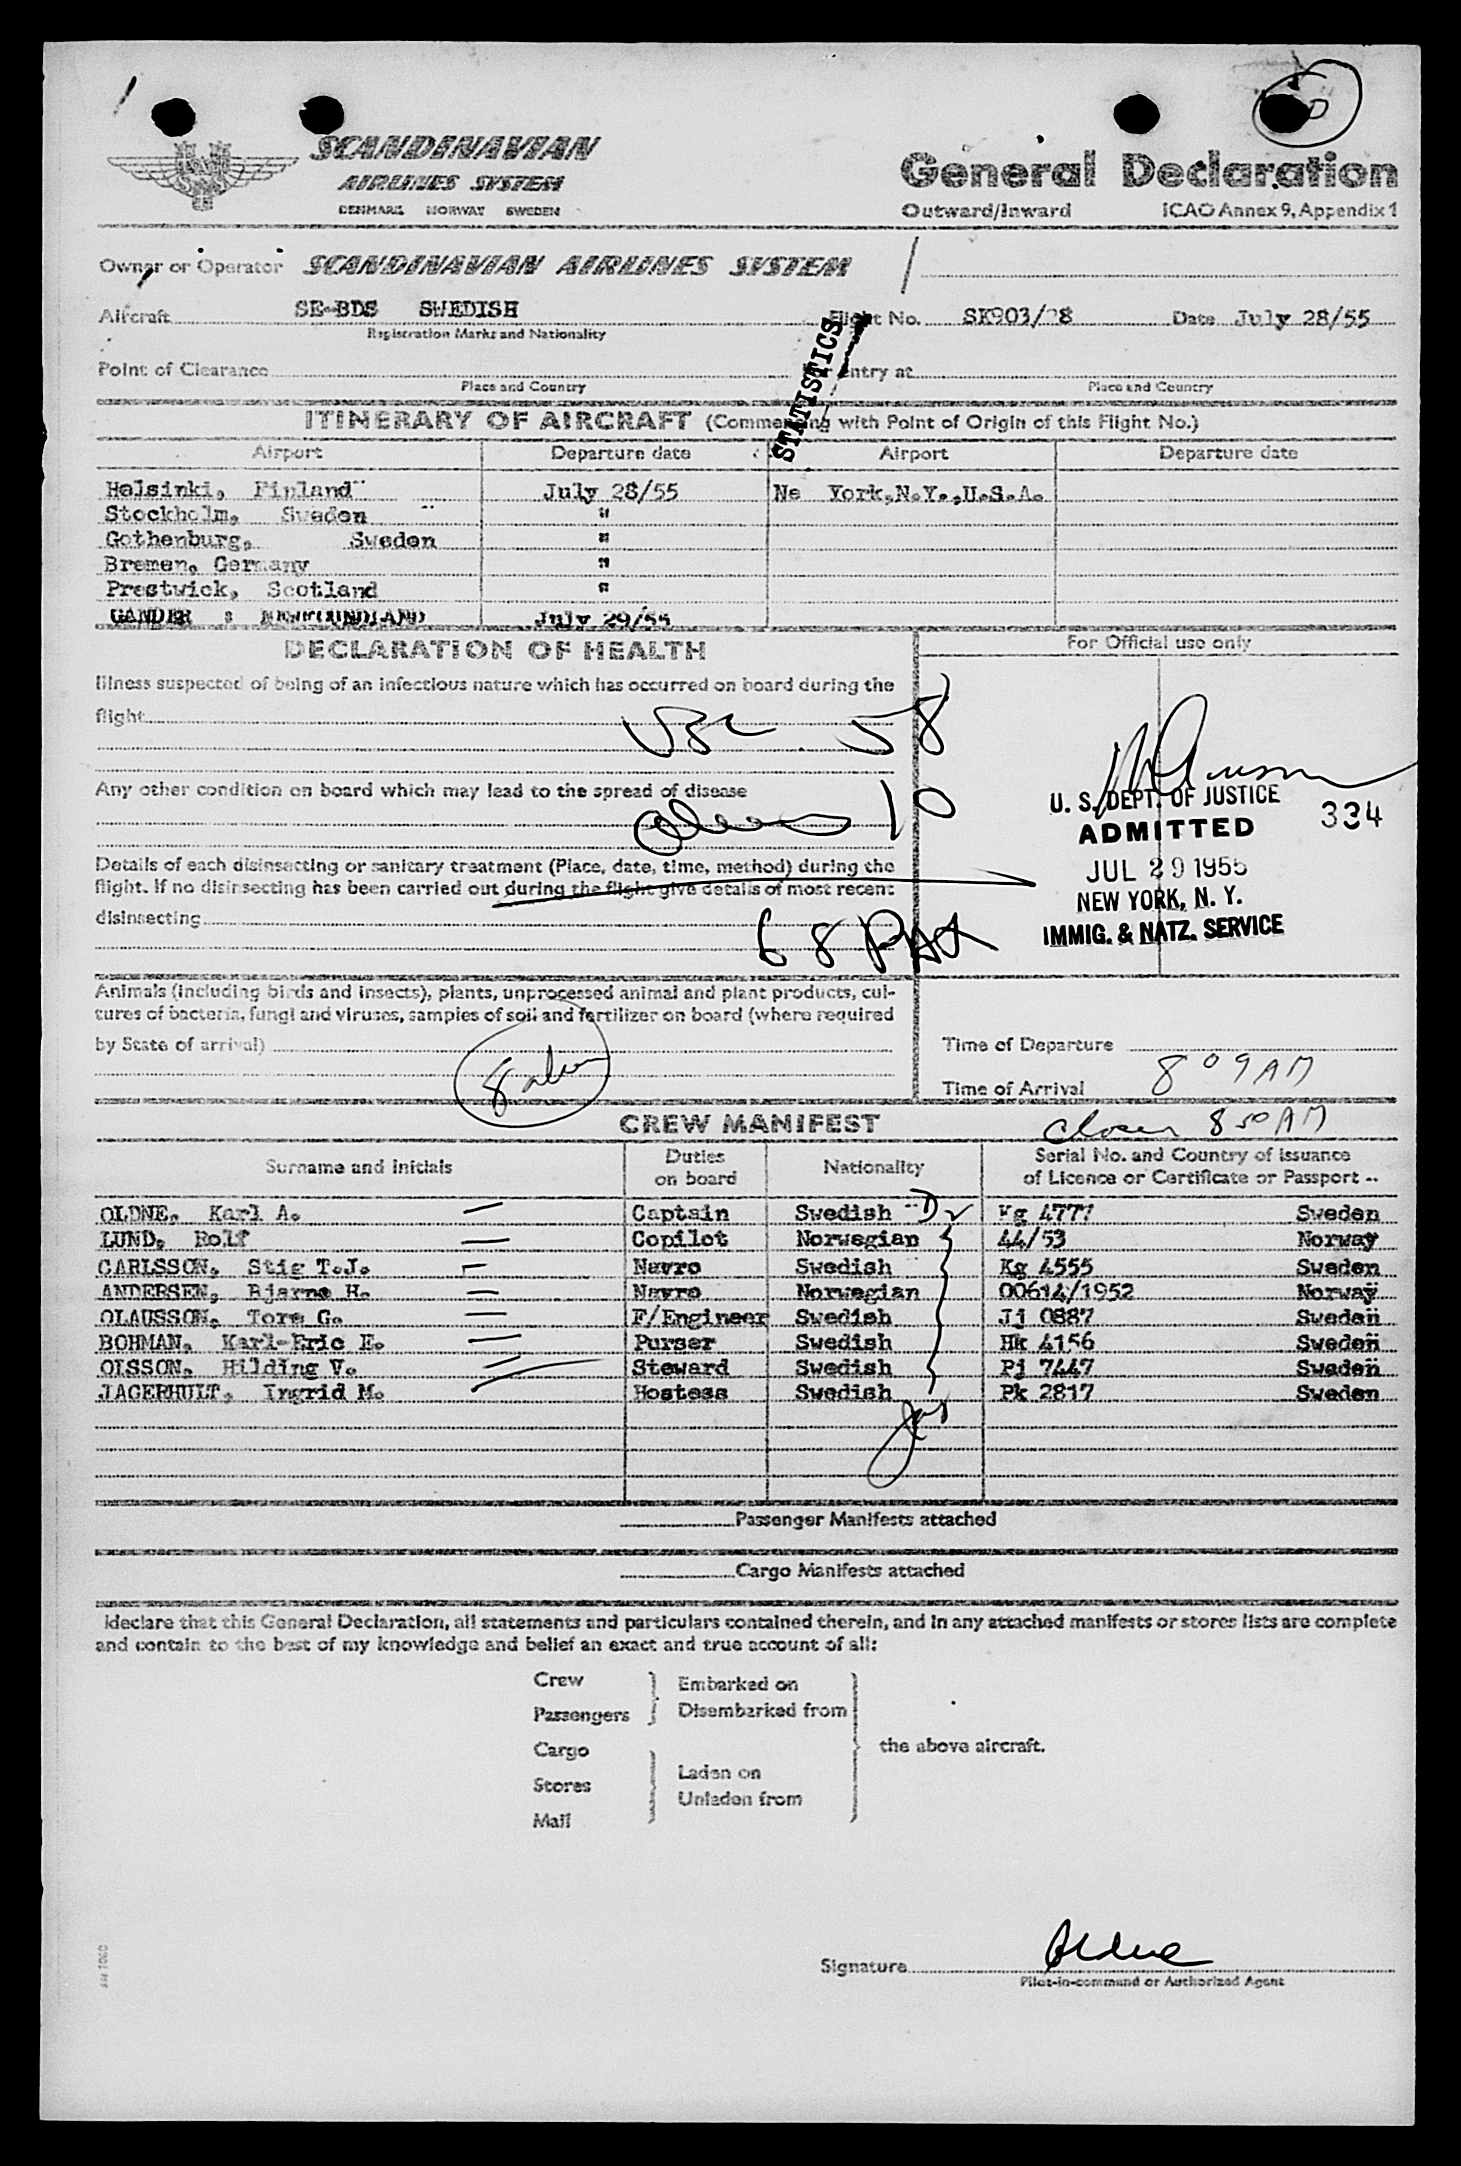 SCANDINAVIAN
AIRLINES SYSTEM
DENMARK NORWAY SWEDEN
General Declaration
Outward/Inward ICAO Annex 9, Appendix 1
Owner or Operator SCANDINAVIAN AIRLINES SYSTEM
Aircraft SE-BDS SWEDISH Flight No. SK903/28 Date July 28/55
Registration Marks and Nationality
Point of Clearance entry at
Place and Country Place and Country
STATISTICS
ITINERARY OF AIRCRAFT (Commencing with Point of Origin of this Flight No.)
Airport Departure date Airport Departure date
Helsinki, Finland July 28/55 Ne York,N.Y.,U.S.A.
Stockholm, Sweden "
Gothenburg, Sweden "
Bremen, Germany "
Prestwick, Scotland "
GANDER : NEWFOUNDLAND July 29/55
DECLARATION OF HEALTH For Official use only
Illness suspected of being of an infectious nature which has occurred on board during the
flight
58
Any other condition on board which may lead to the spread of disease
aliens 10
U. S. DEPT. OF JUSTICE 334
ADMITTED
JUL 29 1955
NEW YORK, N. Y.
IMMIG. & NATZ. SERVICE
Details of each disinsecting or sanitary treatment (Place, date, time, method) during the
flight. If no disinsecting has been carried out during the flight give details of most recent
disinsecting
68
Animals (including birds and insects), plants, unprocessed animal and plant products, cul-
tures of bacteria, fungi and viruses, samples of soil and fertilizer on board (where required
by State of arrival)
8
Time of Departure
Time of Arrival 8 09 AM
CREW MANIFEST
8 50 AM
Surname and Initials Duties on board Nationality Serial No. and Country of issuance of Licence or Certificate or Passport
OLDNE, Karl A. Captain Swedish Kg 4777 Sweden
LUND, Rolf Copilot Norwegian 44/53 Norway
CARLSSON, Stig T.J. Navro Swedish Kg 4555 Sweden
ANDERSEN, Bjarne H. Navro Norwegian 00614/1952 Norway
OLAUSSON, Tore G. F/Engineer Swedish Jj 0887 Sweden
BOHMAN, Karl-Eric E. Purser Swedish Hk 4156 Sweden
OLSSON, Hilding V. Steward Swedish Pj 7447 Sweden
JAGERHULT, Ingrid M. Hostess Swedish Pk 2817 Sweden
Passenger Manifests attached
Cargo Manifests attached
I declare that this General Declaration, all statements and particulars contained therein, and in any attached manifests or stores lists are complete
and contain to the best of my knowledge and belief an exact and true account of all:
Crew Embarked on
Passengers Disembarked from
Cargo the above aircraft.
Laden on
Stores
Unladen from
Mail
Signature Oldne
Pilot-in-command or Authorized Agent